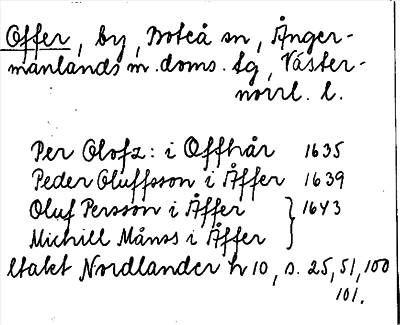 Offer, by, Boteå sn, Ånger-
manlands m. doms. tg, Väster-
norrl. l.
Per Olofz: i Offhår 1635
Peder Oluffsson i Åffer 1639
Oluf Persson i Åffer } 1643
Michill Månss i Åffer
Nordlander h 10, s. 25, 51, 100
101.